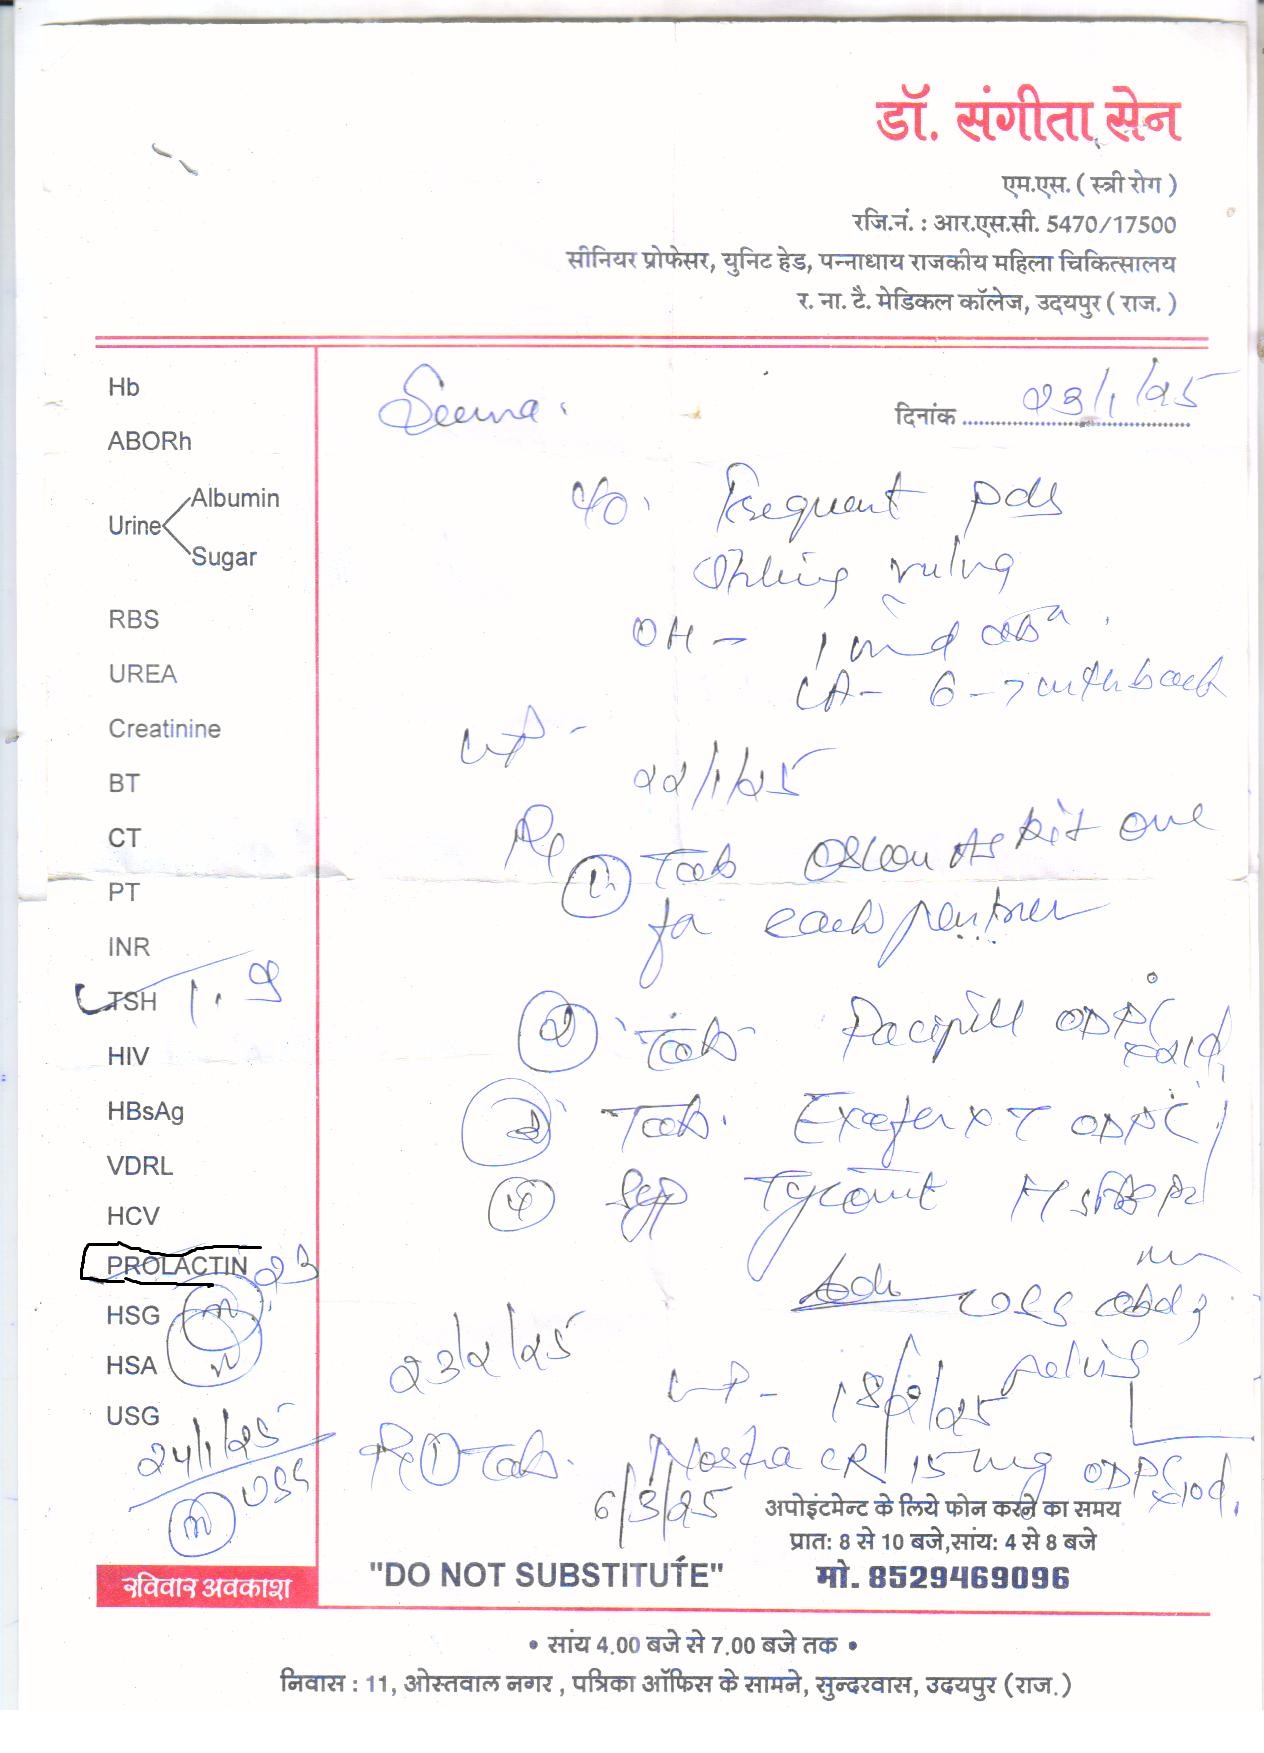 डॉ. संगीता सेन
एम.एस. ( स्त्री रोग )
रजि.नं. : आर.एस.सी. 5470/17500
सीनियर प्रोफेसर, युनिट हेड, पन्नाधाय राजकीय महिला चिकित्सालय
र. ना. टै. मेडिकल कॉलेज, उदयपुर ( राज. )
Seema.
दिनांक 23/1/25
Hb
ABORh
Urine
Albumin
Sugar
RBS
UREA
Creatinine
BT
CT
PT
INR
TSH 1.9
HIV
HBsAg
VDRL
HCV
PROLACTIN 23
HSG
HSA
USG
24/1/25
USG
C/O. Frequent pds
OH - 1
LA - 6-7 mth back
LMP -
22/1/25
Rx
1. Tab Kit one
for each partner
2 Tab. Pacipill
3 Tab. Exafer XT
4 Syp
Adv
USG abd &
pelvis
23/2/25
LMP - 18/2/25
Rx 1 Tab. CR 15 mg
6/3/25
अपोइंटमेन्ट के लिये फोन करने का समय
प्रात: 8 से 10 बजे,सांय: 4 से 8 बजे
मो. 8529469096
"DO NOT SUBSTITUTE"
रविवार अवकाश
• सांय 4.00 बजे से 7.00 बजे तक •
निवास : 11, ओस्तवाल नगर , पत्रिका ऑफिस के सामने, सुन्दरवास, उदयपुर (राज.)